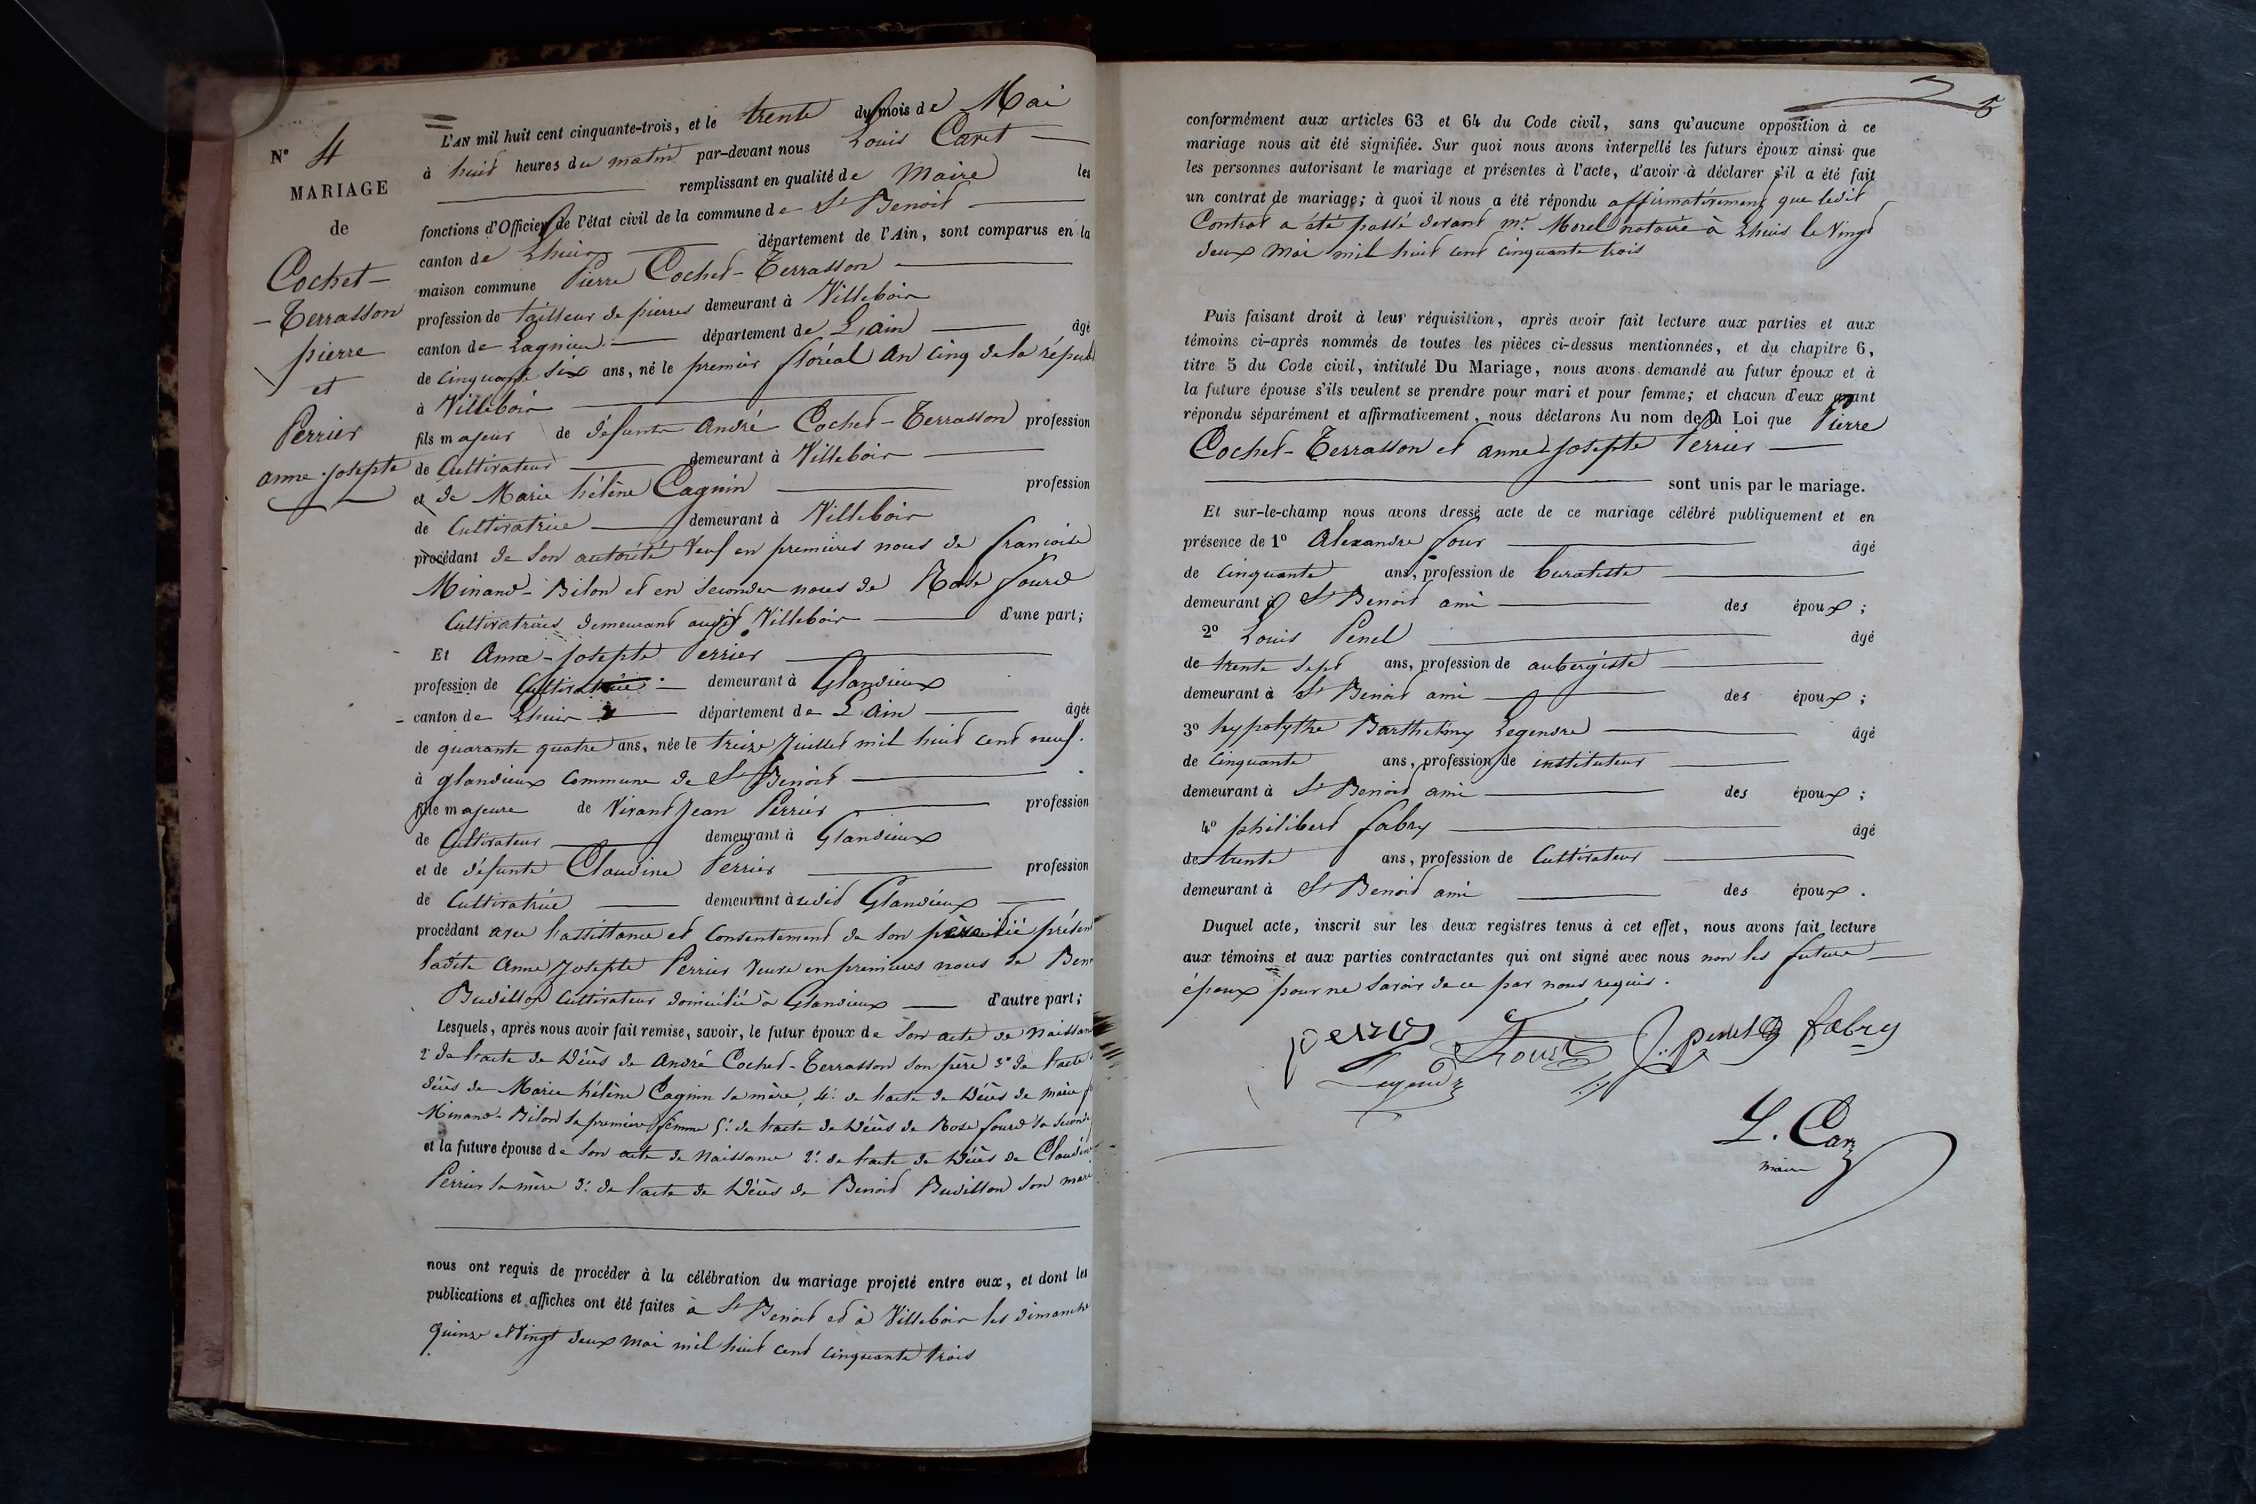 N° 4
MARIAGE
de
Cochet-
-Terrasson
pierre
et
Perrier
anne-josephte
L'AN mil huit cent cinquante-trois, et le trente du mois de Mai
à huit heures du matin par-devant nous Louis Caret
remplissant en qualité de Maire les
fonctions d'Officier de l'état civil de la commune de St Benoit
canton de Lhuis département de l'Ain, sont comparus en la
maison commune Pierre Cochet-Terrasson
profession de tailleur de pierres demeurant à Villebois
canton de Lagnieu département de L'ain âgé
de cinquante six ans, né le premier floréal an cinq de la répub
à Villebois
fils majeur de défunte André Cochet-Terrasson profession
de Cultivateur demeurant à Villebois
et de Marie hélène Cagnin profession
de Cultivatrice demeurant à Villebois
procédant de son autorité Veuf en premières noces de francoise
Minand-Bilon et en secondes noces de Rose fourd
Cultivatrices demeurant audit Villebois d'une part;
Et Anne-josephte Perrier
profession de Cultivatrice demeurant à Glandieux
canton de Lhuis département de L'Ain âgée
de quarante quatre ans, née le treize Juillet mil huit cent neuf.
à glandieux Commune de St Benoit
fille majeure de Vivant Jean Perrier profession
de Cultivateur demeurant à Glandieux
et de défunte Claudine Perrier profession
de Cultivatrice demeurant à sudit Glandieux
procédant avec l'assistance et Consentement de son père ici présent
ladite Anne Josephte Perrier Veuve en premières noces de Ben
Budillon Cultivateur domicilié à Glandieux d'autre part;
Lesquels, après nous avoir fait remise, savoir, le futur époux de son acte de naissan
2° de l'acte de Décès de André Cochet-Terrasson son père 3° de l'acte
décès de Marie hélène Cagnin sa mère, 4° de l'acte de Décès de
Minand-Bilon sa première femme 5° de l'acte de Décès de Rose fourd sa seconde
et la future épouse de son acte de Naissance 2° de l'acte de Décès de Claudine
Perrier sa mère 3° de l'acte de Décès de Benoit Budillon son mari
nous ont requis de procéder à la célébration du mariage projeté entre eux, et dont les
publications et affiches ont été faites à St Benoit et à Villebois les dimanche
quinze et Vingt deux mai mil huit cent cinquante trois
5
conformément aux articles 63 et 64 du Code civil, sans qu'aucune opposition à ce
mariage nous ait été signifiée. Sur quoi nous avons interpellé les futurs époux ainsi que
les personnes autorisant le mariage et présentes à l'acte, d'avoir à déclarer s'il a été fait
un contrat de mariage; à quoi il nous a été répondu affirmativement que ledit
Contrat a été passé devant me Morel notaire à Lhuis le Vingt
deux Mai mil huit cent cinquante trois
Puis faisant droit à leur réquisition, après avoir fait lecture aux parties et aux
témoins ci-après nommés de toutes les pièces ci-dessus mentionnées, et du chapitre 6,
titre 5 du Code civil, intitulé Du Mariage, nous avons demandé au futur époux et à
la future épouse s'ils veulent se prendre pour mari et pour femme; et chacun d'eux ayant
répondu séparément et affirmativement, nous déclarons Au nom de la Loi que Pierre
Cochet-Terrasson et anne-josephte Perrier
sont unis par le mariage.
Et sur-le-champ nous avons dressé acte de ce mariage célébré publiquement et en
présence de 1° Alexandre four âgé
de cinquante ans, profession de buraliste
demeurant à St Benoit ami des époux;
2° Louis Penel âgé
de trente sept ans, profession de aubergiste
demeurant à St Benoit ami des époux;
3° hypolythe Barthelmy Legendre âgé
de cinquante ans, profession de instituteur
demeurant à St Benoit ami des époux;
4° philibert fabry âgé
de trente ans, profession de Cultivateur
demeurant à St Benoit ami des époux.
Duquel acte, inscrit sur les deux registres tenus à cet effet, nous avons fait lecture
aux témoins et aux parties contractantes qui ont signé avec nous non les futurs
époux pour ne savoir de ce par nous requis.
perrier penel fabry
Legendr
L. Car
maire